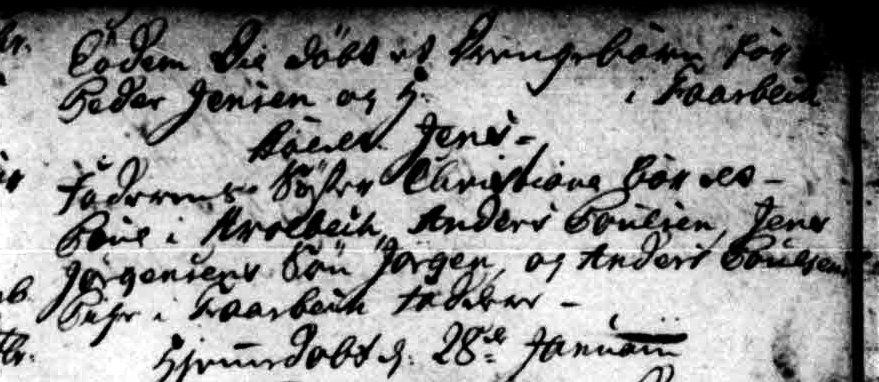 Eodem Die døbt et Drengebarn for
Peder Jensen og H. i Faarbech
kaldet Jens -
Faderens Søster Christiane bar det -
Poul i Krogbech, Anders Poulsen, Jens
Jørgensens Søn Jørgen, og Anders Poulsens
i Faarbech Faddere -
Hjemmedøbt d. 28de Januarii